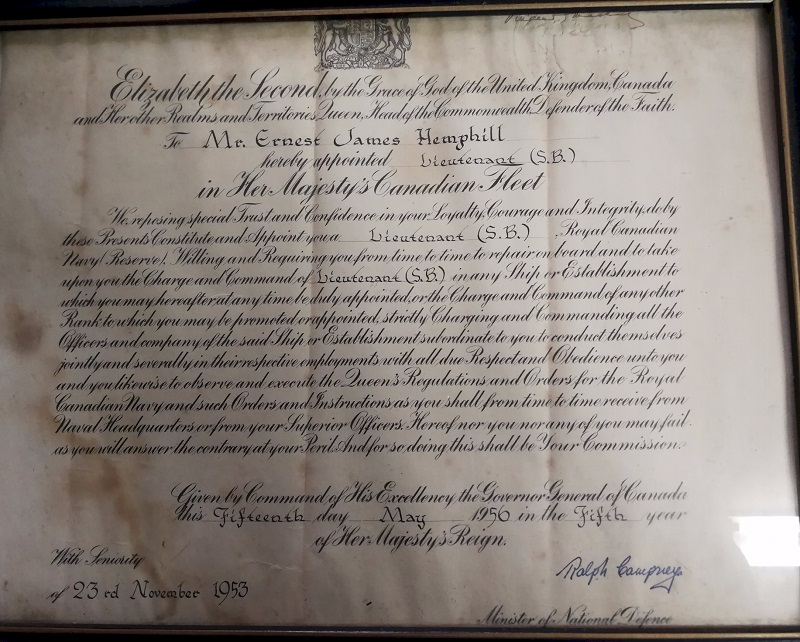 Elizabeth the Second, by the Grace of God of the United Kingdom, Canada
and Her other Realms and Territories Queen, Head of the Commonwealth, Defender of the Faith.
To Mr. Ernest James Hemphill
hereby appointed Lieutenant (S.B.)
in Her Majesty's Canadian Fleet
We, reposing special Trust and Confidence in your Loyalty, Courage and Integrity, do by
these Presents Constitute and Appoint you a Lieutenant (S.B.) Royal Canadian
Navy (Reserve). Willing and Requiring you from time to time to repair on board and to take
upon you the Charge and Command of Lieutenant (S.B.) in any Ship or Establishment to
which you may hereafter at any time be duly appointed, or the Charge and Command of any other
Rank to which you may be promoted or appointed, strictly Charging and Commanding all the
Officers and company of the said Ship or Establishment subordinate to you to conduct themselves
jointly and severally in their respective employments with all due Respect and Obedience unto you
and you likewise to observe and execute the Queen's Regulations and Orders for the Royal
Canadian Navy and such Orders and Instructions as you shall from time to time receive from
Naval Headquarters or from your Superior Officers. Hereof nor you nor any of you may fail
as you will answer the contrary at your Peril. And for so doing this shall be Your Commission.
Given by Command of His Excellency the Governor General of Canada
this Fifteenth day May 1956 in the Fifth year
of Her Majesty's Reign.
With Seniority
of 23rd November 1953
Ralph Campney
Minister of National Defence